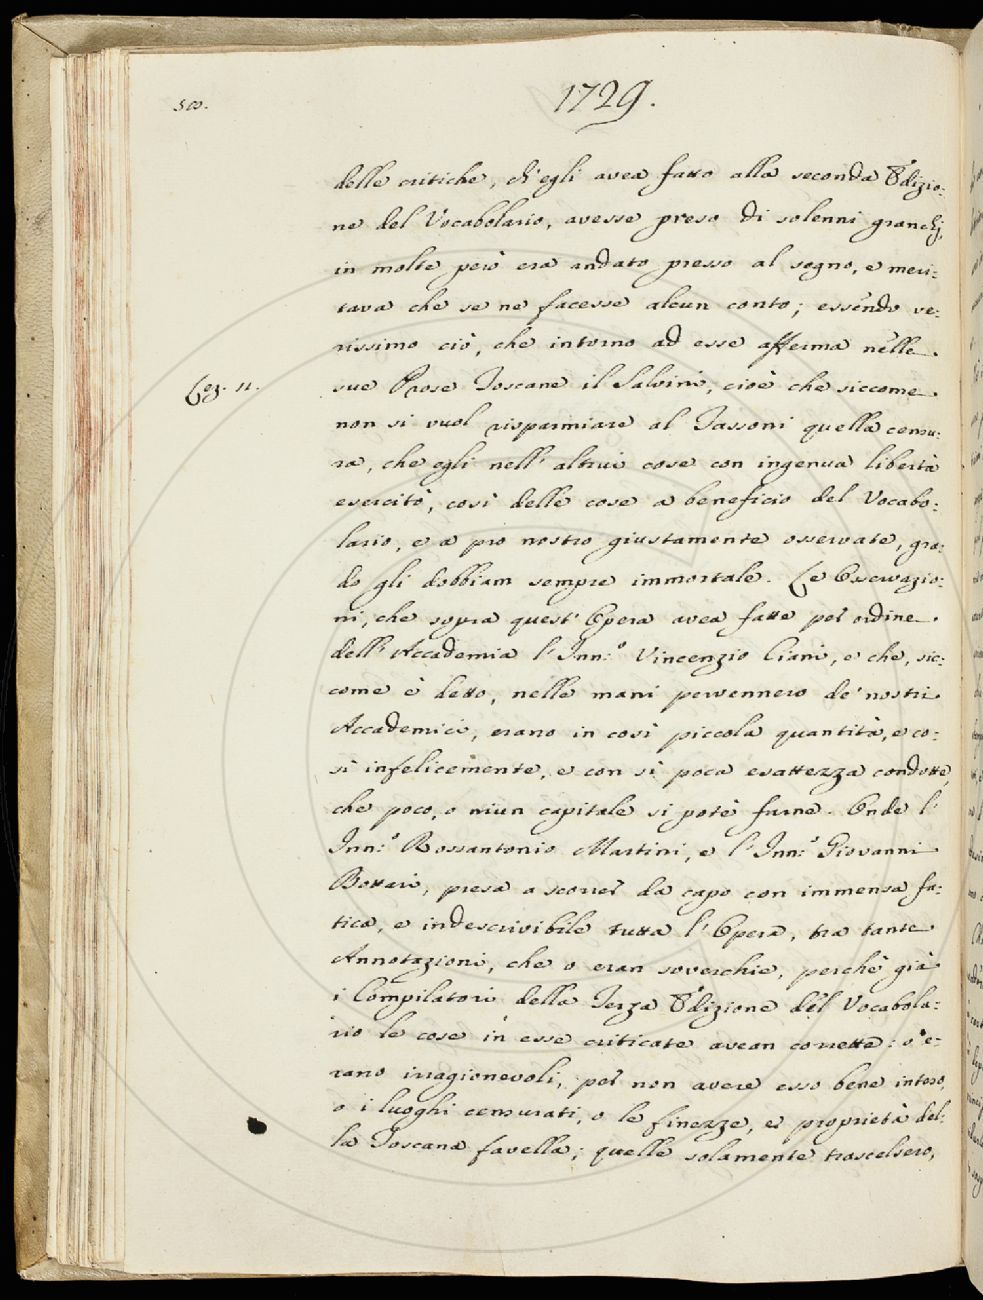 500.
1729.
delle critiche, ch'egli avea fatto alla seconda Edizio:
ne del Vocabolario, avesse preso di solenni granchj,
in molte però era andato presso al segno, e meri:
tava che se ne facesse alcun conto; essendo ve:
rissimo ciò, che intorno ad esse afferma nelle
Lez. 11.
sue Prose Toscane il Salvini, cioè che siccome
non si vuol risparmiare al Tassoni quella censu:
ra, che egli nell'altrui cose con ingenua libertà
esercitò, così delle cose a beneficio del Vocabo:
lario, e a pro nostro giustamente osservate, gra:
do gli dobbiam sempre immortale. Le Osservazio:
ni, che sopra quest'Opera avea fatte per ordine
dell'Accademia l'Inn:º Vincenzio Ciani, e che, sic:
come è detto, nelle mani pervennero de' nostri
Accademici, erano in così piccola quantità, e co:
sì infelicemente, e con sì poca esattezza condotte,
che poco, o niun capitale si potè farne. Onde l'
Inn:º Rossantonio Martini, e l'Inn:º Giovanni
Bottari, presa a scorrer da capo con immensa fa:
tica, e indescrivibile tutta l'Opera, tra tante
Annotazioni, che o eran soverchie, perchè già
i Compilatori della Terza Edizione del Vocabola:
rio le cose in esse criticate avean corrette: o e:
rano irragionevoli, per non avere esso bene inteso,
o i luoghi censurati, o le finezze, e proprietà del:
la Toscana favella; quelle solamente trascelsero,